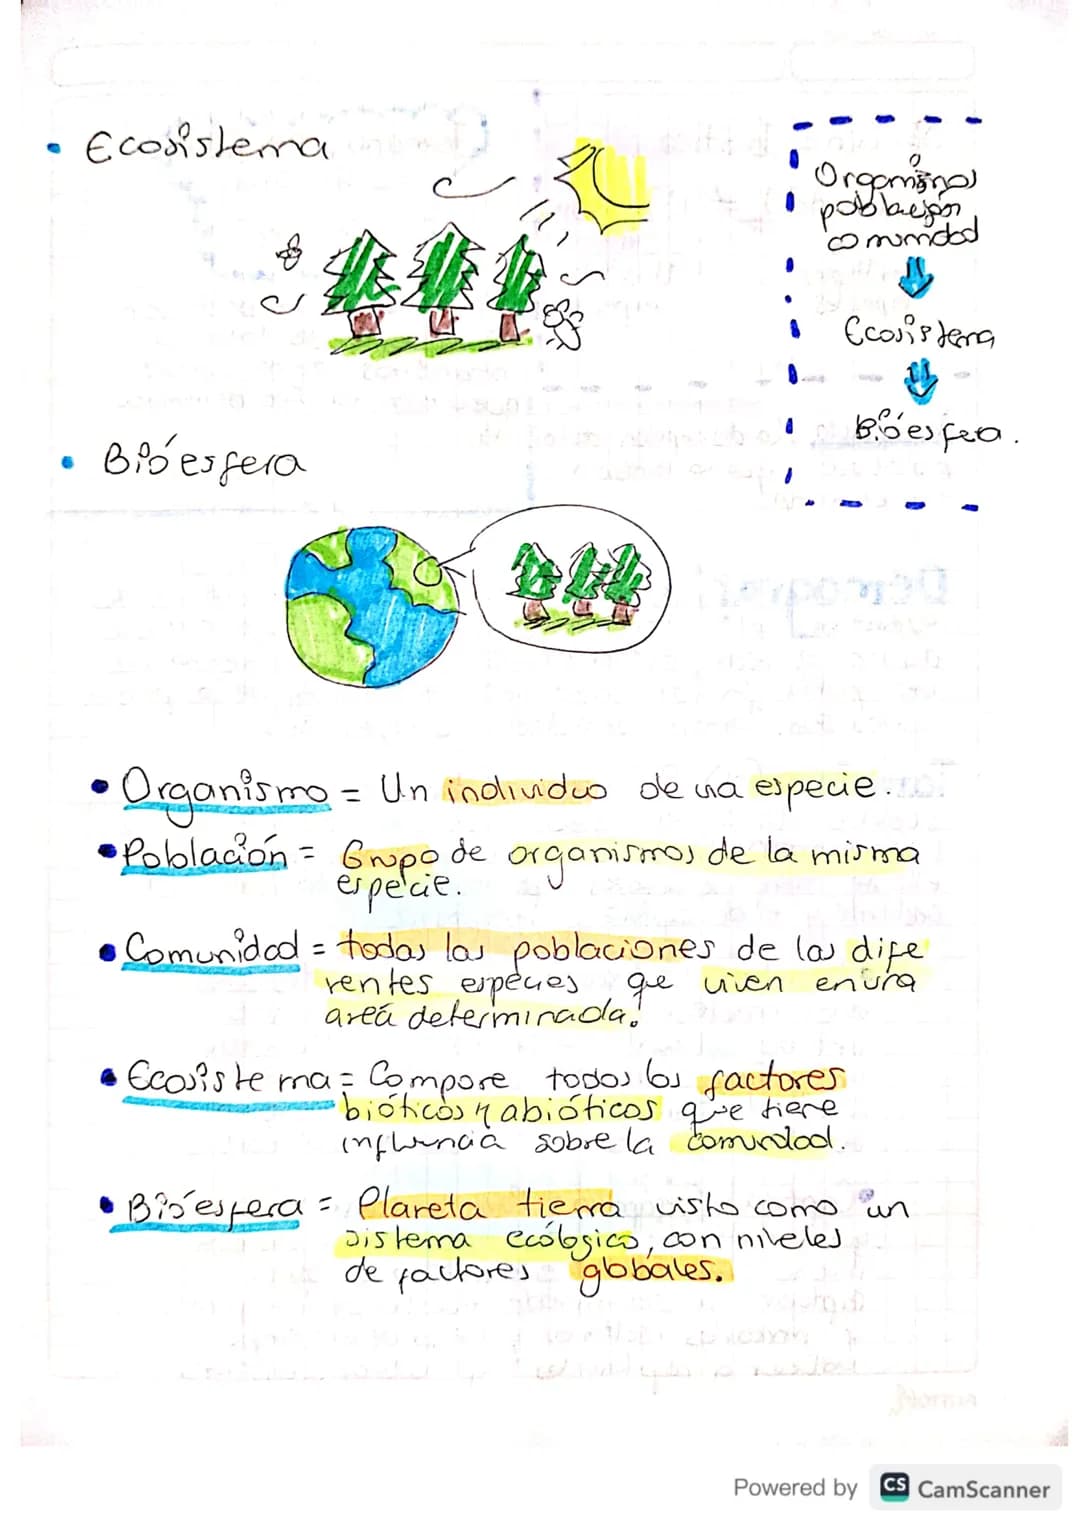 • Ecosistema
Organismos
población
comunidad
Ecosistema
Bióesfera.
• Bióesfera
• Organismo = Un individuo de una especie.
• Población = Grupo de organismos de la misma
especie.
• Comunidad = todas las poblaciones de las dife
rentes especies que viven en una
areá determinada.
• Ecosistema = Compone todos los factores
bióticos y abióticos que tiene
influencia sobre la comunidad.
• Bióesfera = Planeta tierra visto como un
sistema ecólogico, con niveles
de factores globales.
Norma
Powered by CS CamScanner